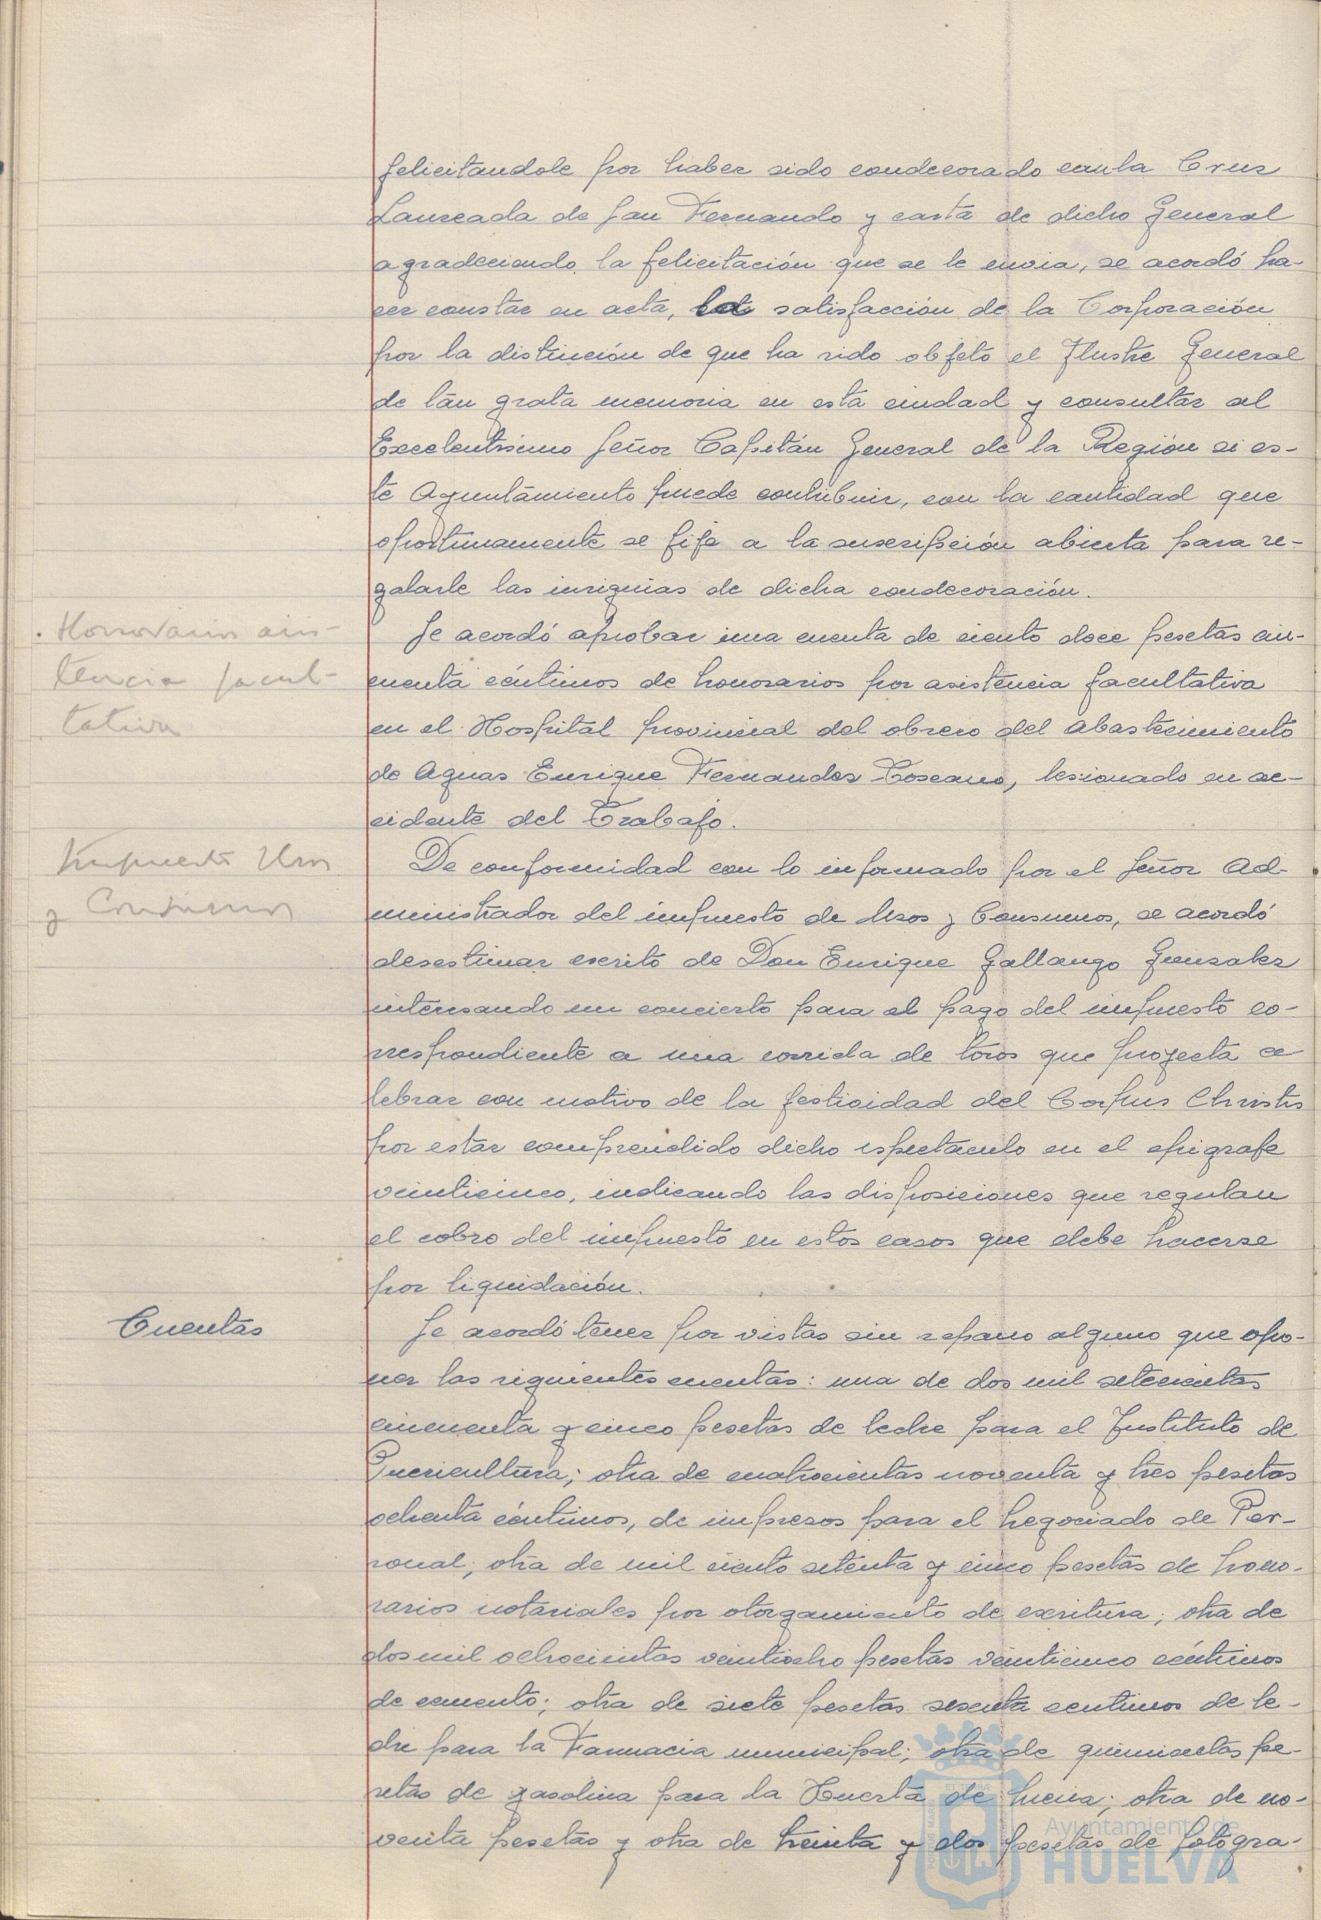 felicitandole por haber sido condecorado conla Cruz
Laureada de San Fernando y carta de dicho General
agradeciendo la felicitación que se le envia, se acordó ha-
cer constar en acta, la satisfacción de la Corporación
por la distinción de que ha sido objeto el Ilustre General
de tan grata memoria en esta ciudad y consultar al
Excelentisimo Señor Capitán General de la Región si es-
te Ayuntamiento puede contribuir, con la cantidad que
oportunamente se fije a la suscripción abierta para re-
galarle las insignias de dicha condecoración.
. Honorarios asis-
tencia facul-
tativa
Se acordó aprobar una cuenta de ciento doce pesetas cin-
cuenta céntimos de honorarios por asistencia facultativa
en el Hospital provincial del obrero del abastecimiento
de Aguas Enrique Fernandez Toscano, lesionado en ac-
cidente del Trabajo.
Impuesto Usos
y Consumos
De conformidad con lo informado por el Señor Ad-
ministrador del impuesto de Usos y Consumos, se acordó
desestimar escrito de Don Enrique Gallango Gonzalez
interesando un concierto para el pago del impuesto co-
rrespondiente a una corrida de toros que proyecta ce
lebrar con motivo de la festividad del Corpus Christis
por estar comprendido dicho espectaculo en el epigrafe
veinticinco, indicando las disposiciones que regulan
el cobro del impuesto en estos casos que debe hacerse
por liquidación.
Cuentas
Se acordó tener por vistas sin reparo alguno que opo-
ner las siguientes cuentas: una de dos mil setecientas
cincuenta y cinco pesetas de leche para el Instituto de
Puericultura; otra de cuatrocientas noventa y tres pesetas
ochenta céntimos, de impresos para el Negociado de Per-
sonal; otra de mil ciento setenta y cinco pesetas de hono-
rarios notariales por otorgamiento de escritura; otra de
dos mil ochocientas veintiocho pesetas veinticinco céntimos
de cemento; otra de siete pesetas sesenta centimos de le-
che para la Farmacia municipal; otra de quinientas pe-
setas de gasolina para la Huerta de Mena; otra de no-
venta pesetas y otra de treinta y dos pesetas de fotogra-
Ayuntamiento de
HUELVA